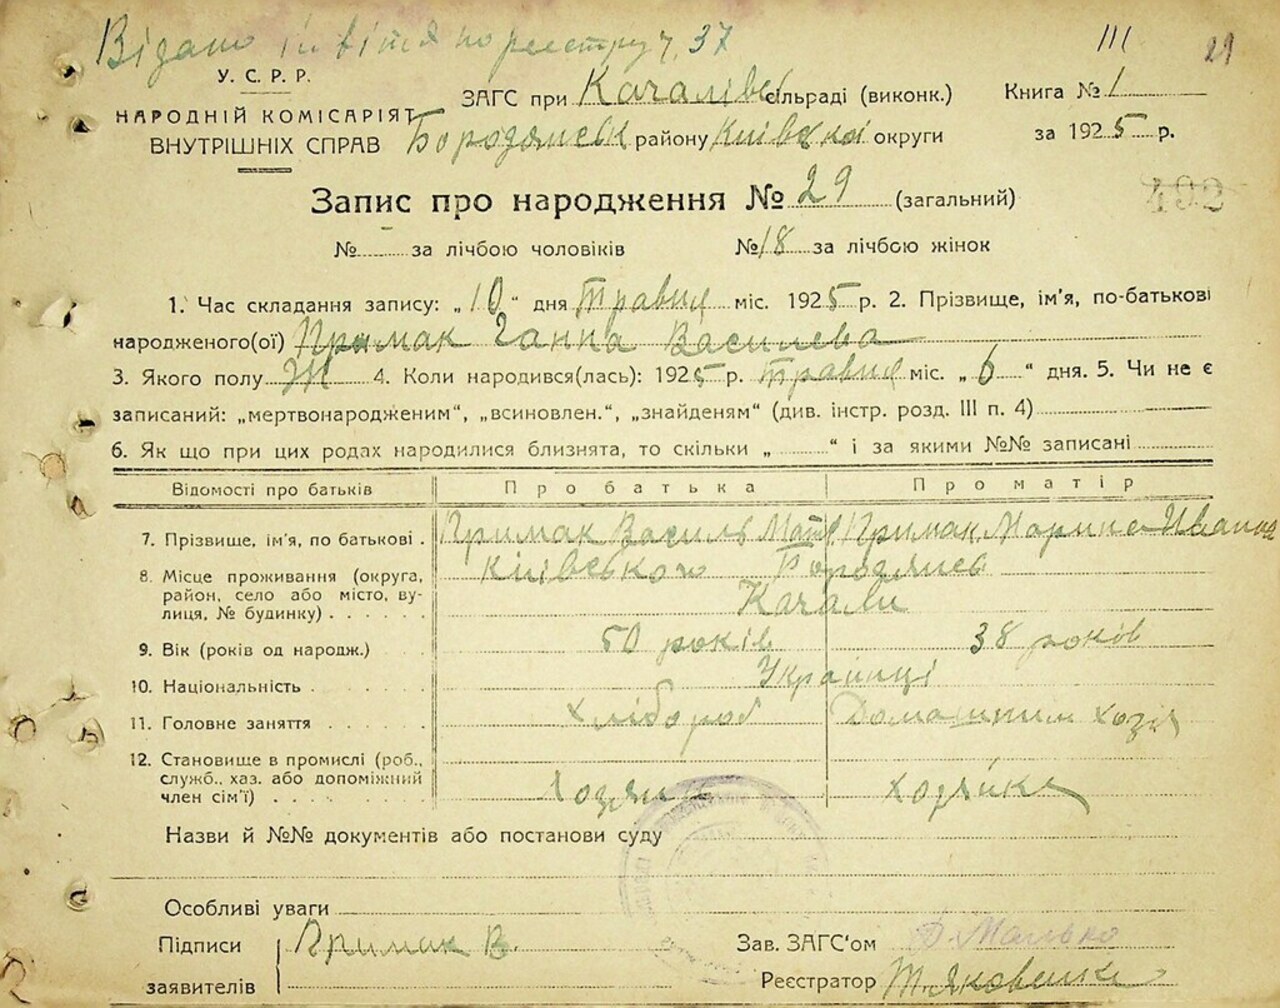 Видано по реєстру ч. 37
III 29
У. С. Р. Р.
НАРОДНІЙ КОМІСАРІЯТ
ВНУТРІШНІХ СПРАВ
ЗАГС при Качалівс сільраді (виконк.)
Бородянськ району Київської округи
Книга № 1
за 1925 р.
Запис про народження № 29 (загальний)
492
№ за лічбою чоловіків № 18 за лічбою жінок
1. Час складання запису: „10“ дня травня міс. 1925 р. 2. Прізвище, ім'я, по-батькові
народженого(ої) Примак Ганна Василева
3. Якого полу Ж 4. Коли народився(лась): 1925 р. травня міс. „6“ дня. 5. Чи не є
записаний: „мертвонародженим“, „всиновлен.“, „знайденям“ (див. інстр. розд. III п. 4)
6. Як що при цих родах народилися близнята, то скільки „ “ і за якими №№ записані
Відомості про батьків Про батька Про матір
7. Прізвище, ім'я, по батькові . Примак Василь Мат. Примак Марина Иванна
8. Місце проживання (округа, Київського Бородянсв
район, село або місто, ву-
лиця, № будинку) . . . . . Качали
9. Вік (років од народж.) 50 років 38 років
10. Національність Українці
11. Головне заняття Хлібороб Домашним хозя
12. Становище в промислі (роб.,
служб., хаз. або допоміжний
член сім'ї) Хозяин хозяйка
Назви й №№ документів або постанови суду
Особливі уваги
Підписи Примак В.
заявителів
Зав. ЗАГС'ом Малько
Реєстратор Т. Яковенко